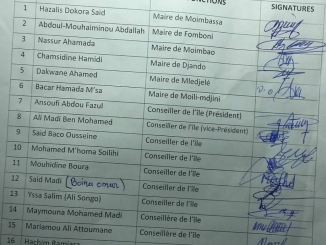 NCTIONS SIGNATURES
1 Hazalis Dokora Said Maire de Moimbassa
2 Abdoul-Mouhaiminou Abdallah Maire de Fomboni
3 Nassur Ahamada Maire de Moimbao
4 Chamsidine Hamidi Maire de Djando
5 Dakwane Ahamed Maire de Mledjelé
6 Bacar Hamada M'sa Maire de Moili-mdjini
7 Ansoufi Abdou Fazul Conseiller de l'île (Président)
8 Ali Madi Ben Mohamed Conseiller de l'île (vice-Président)
9 Said Baco Ousseine Conseiller de l'île
10 Mohamed M'homa Soilihi Conseiller de l'île
11 Mouhidine Boura Conseiller de l'île
12 Said Madi (Boina omar) Conseiller de l'île
13 Yssa Salim (Ali Songo) Conseiller de l'île
14 Maymouna Mohamed Madi Conseillère de l'île
15 Mariamou Ali Attoumane Conseillère de l'île
16 Hachim